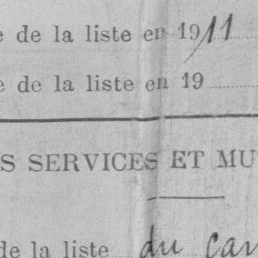 e de la liste en 1911
e de la liste en 19
S SERVICES ET MU
de la liste du car